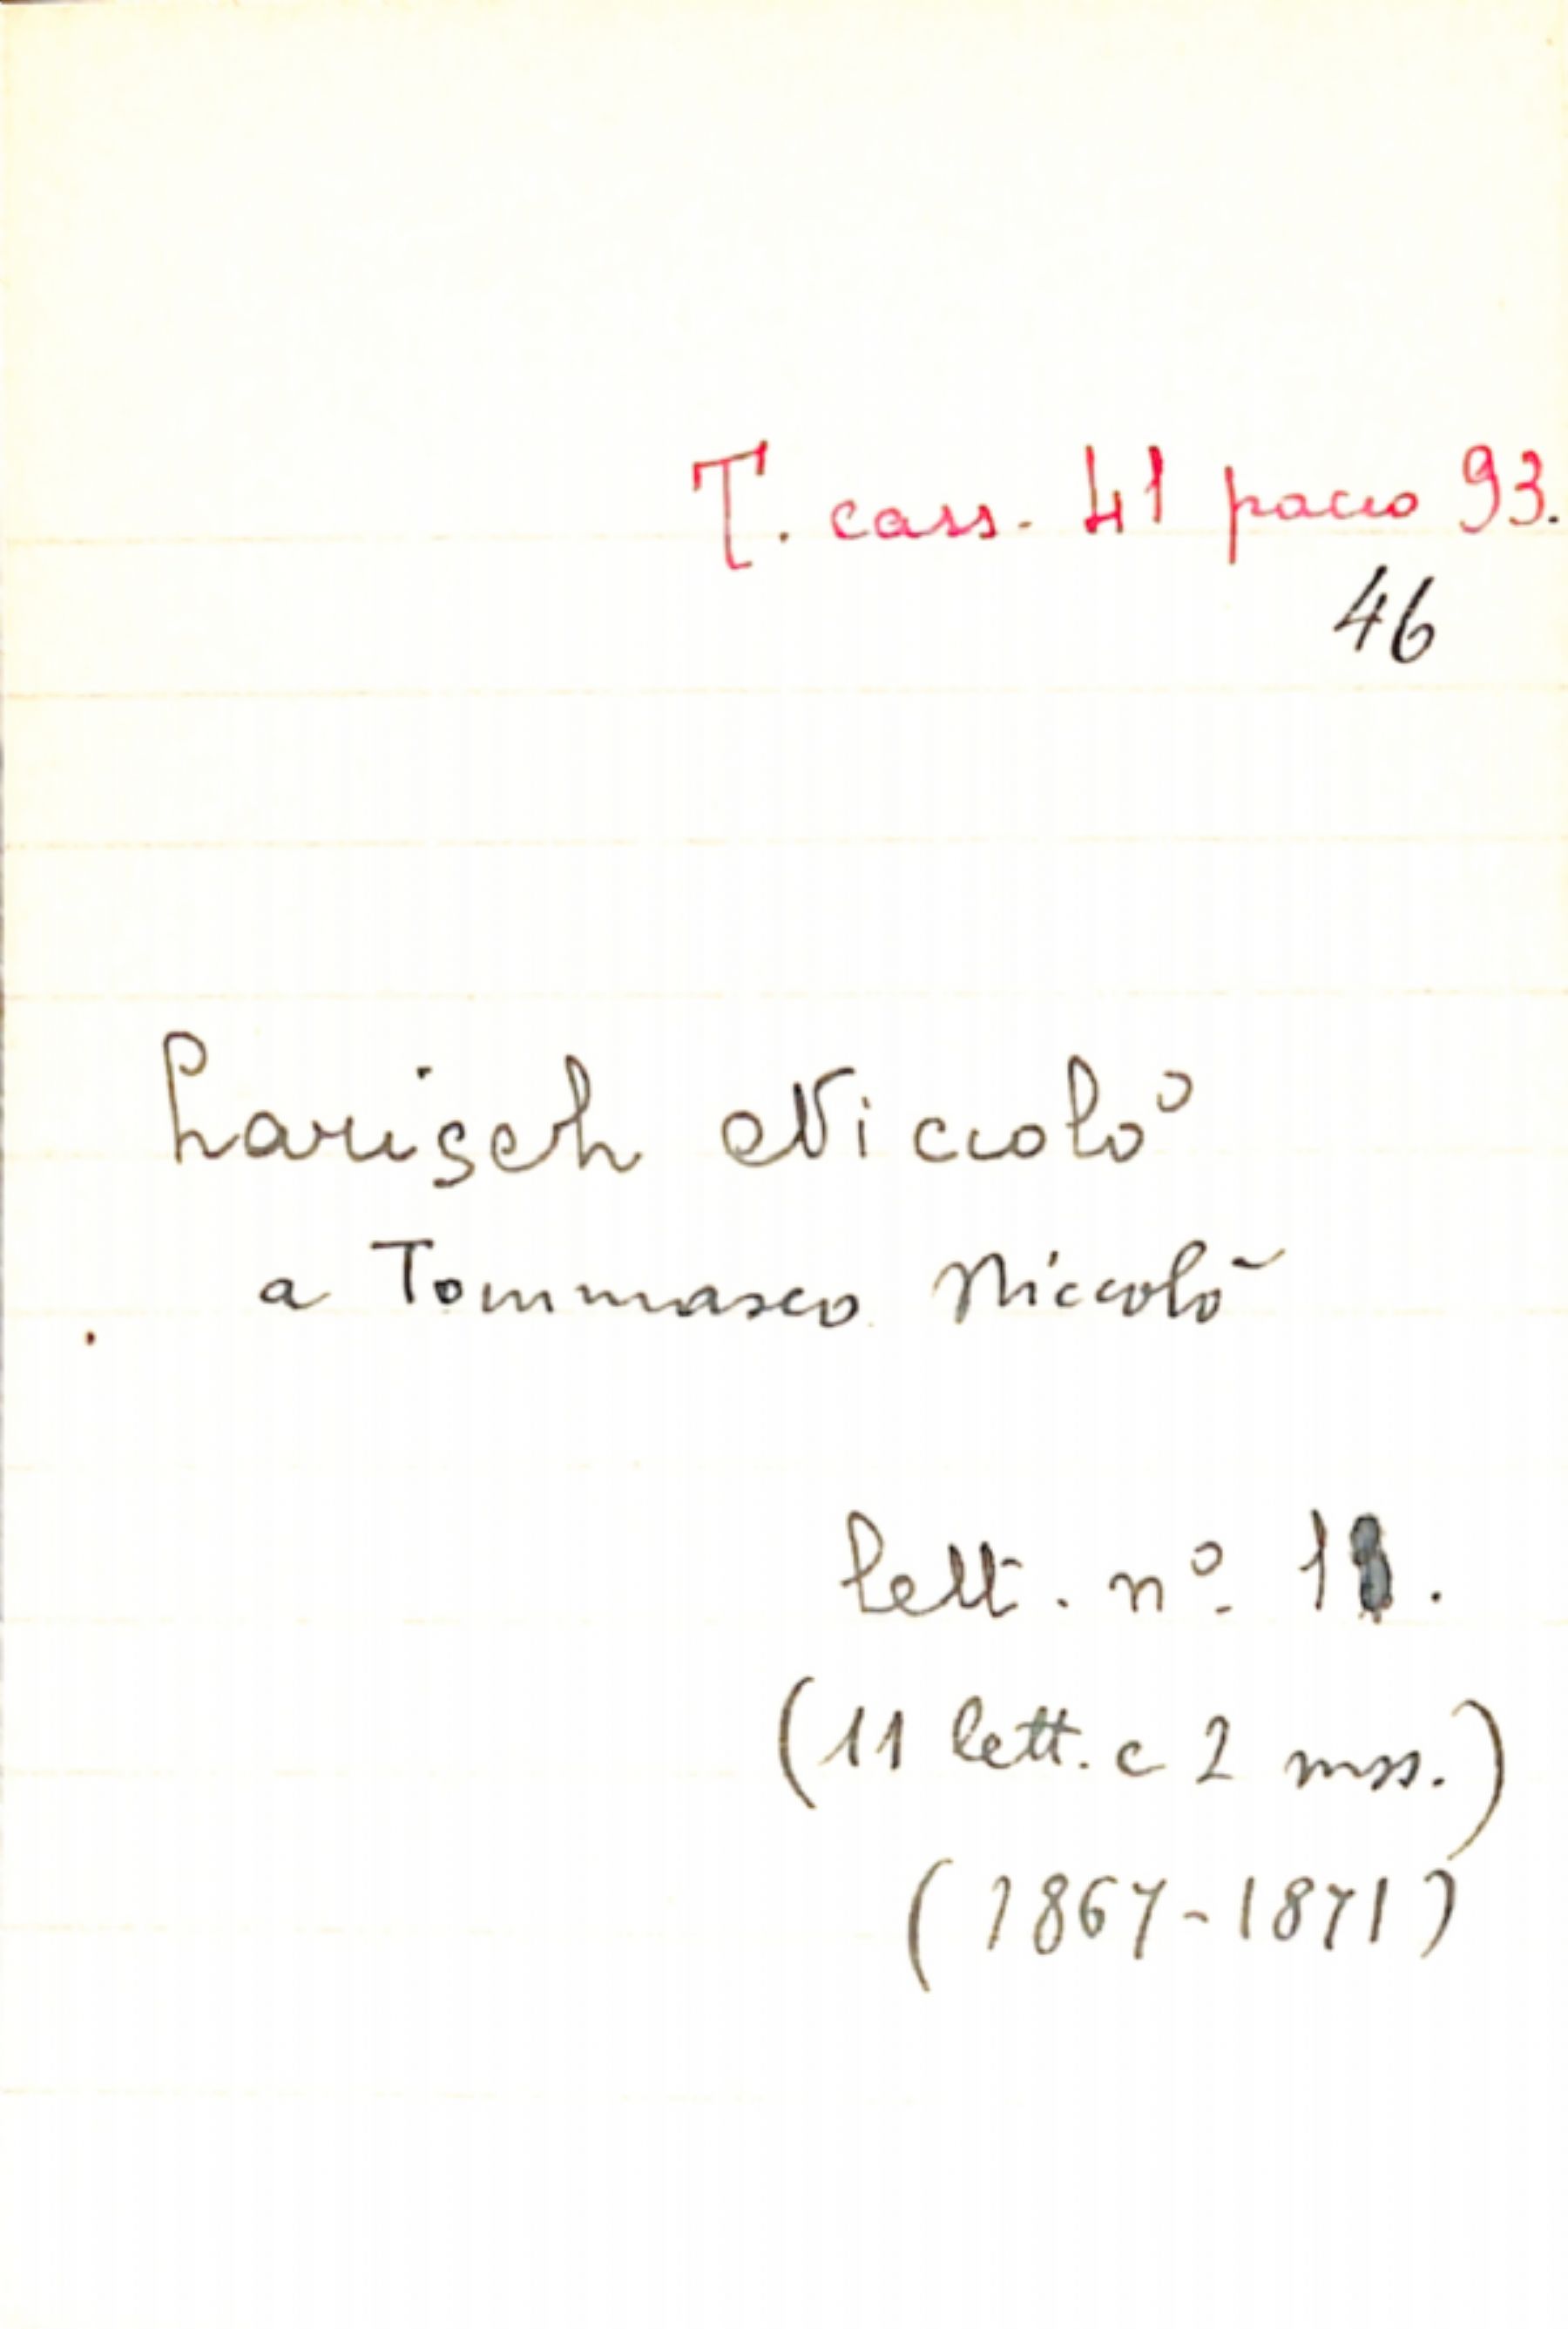 T. cass. 41 pacco 93.
46
Larisch Niccolò
a Tommaseo Niccolò
lett. n° 11.
(11 lett. e 2 mss.)
(1867-1871)